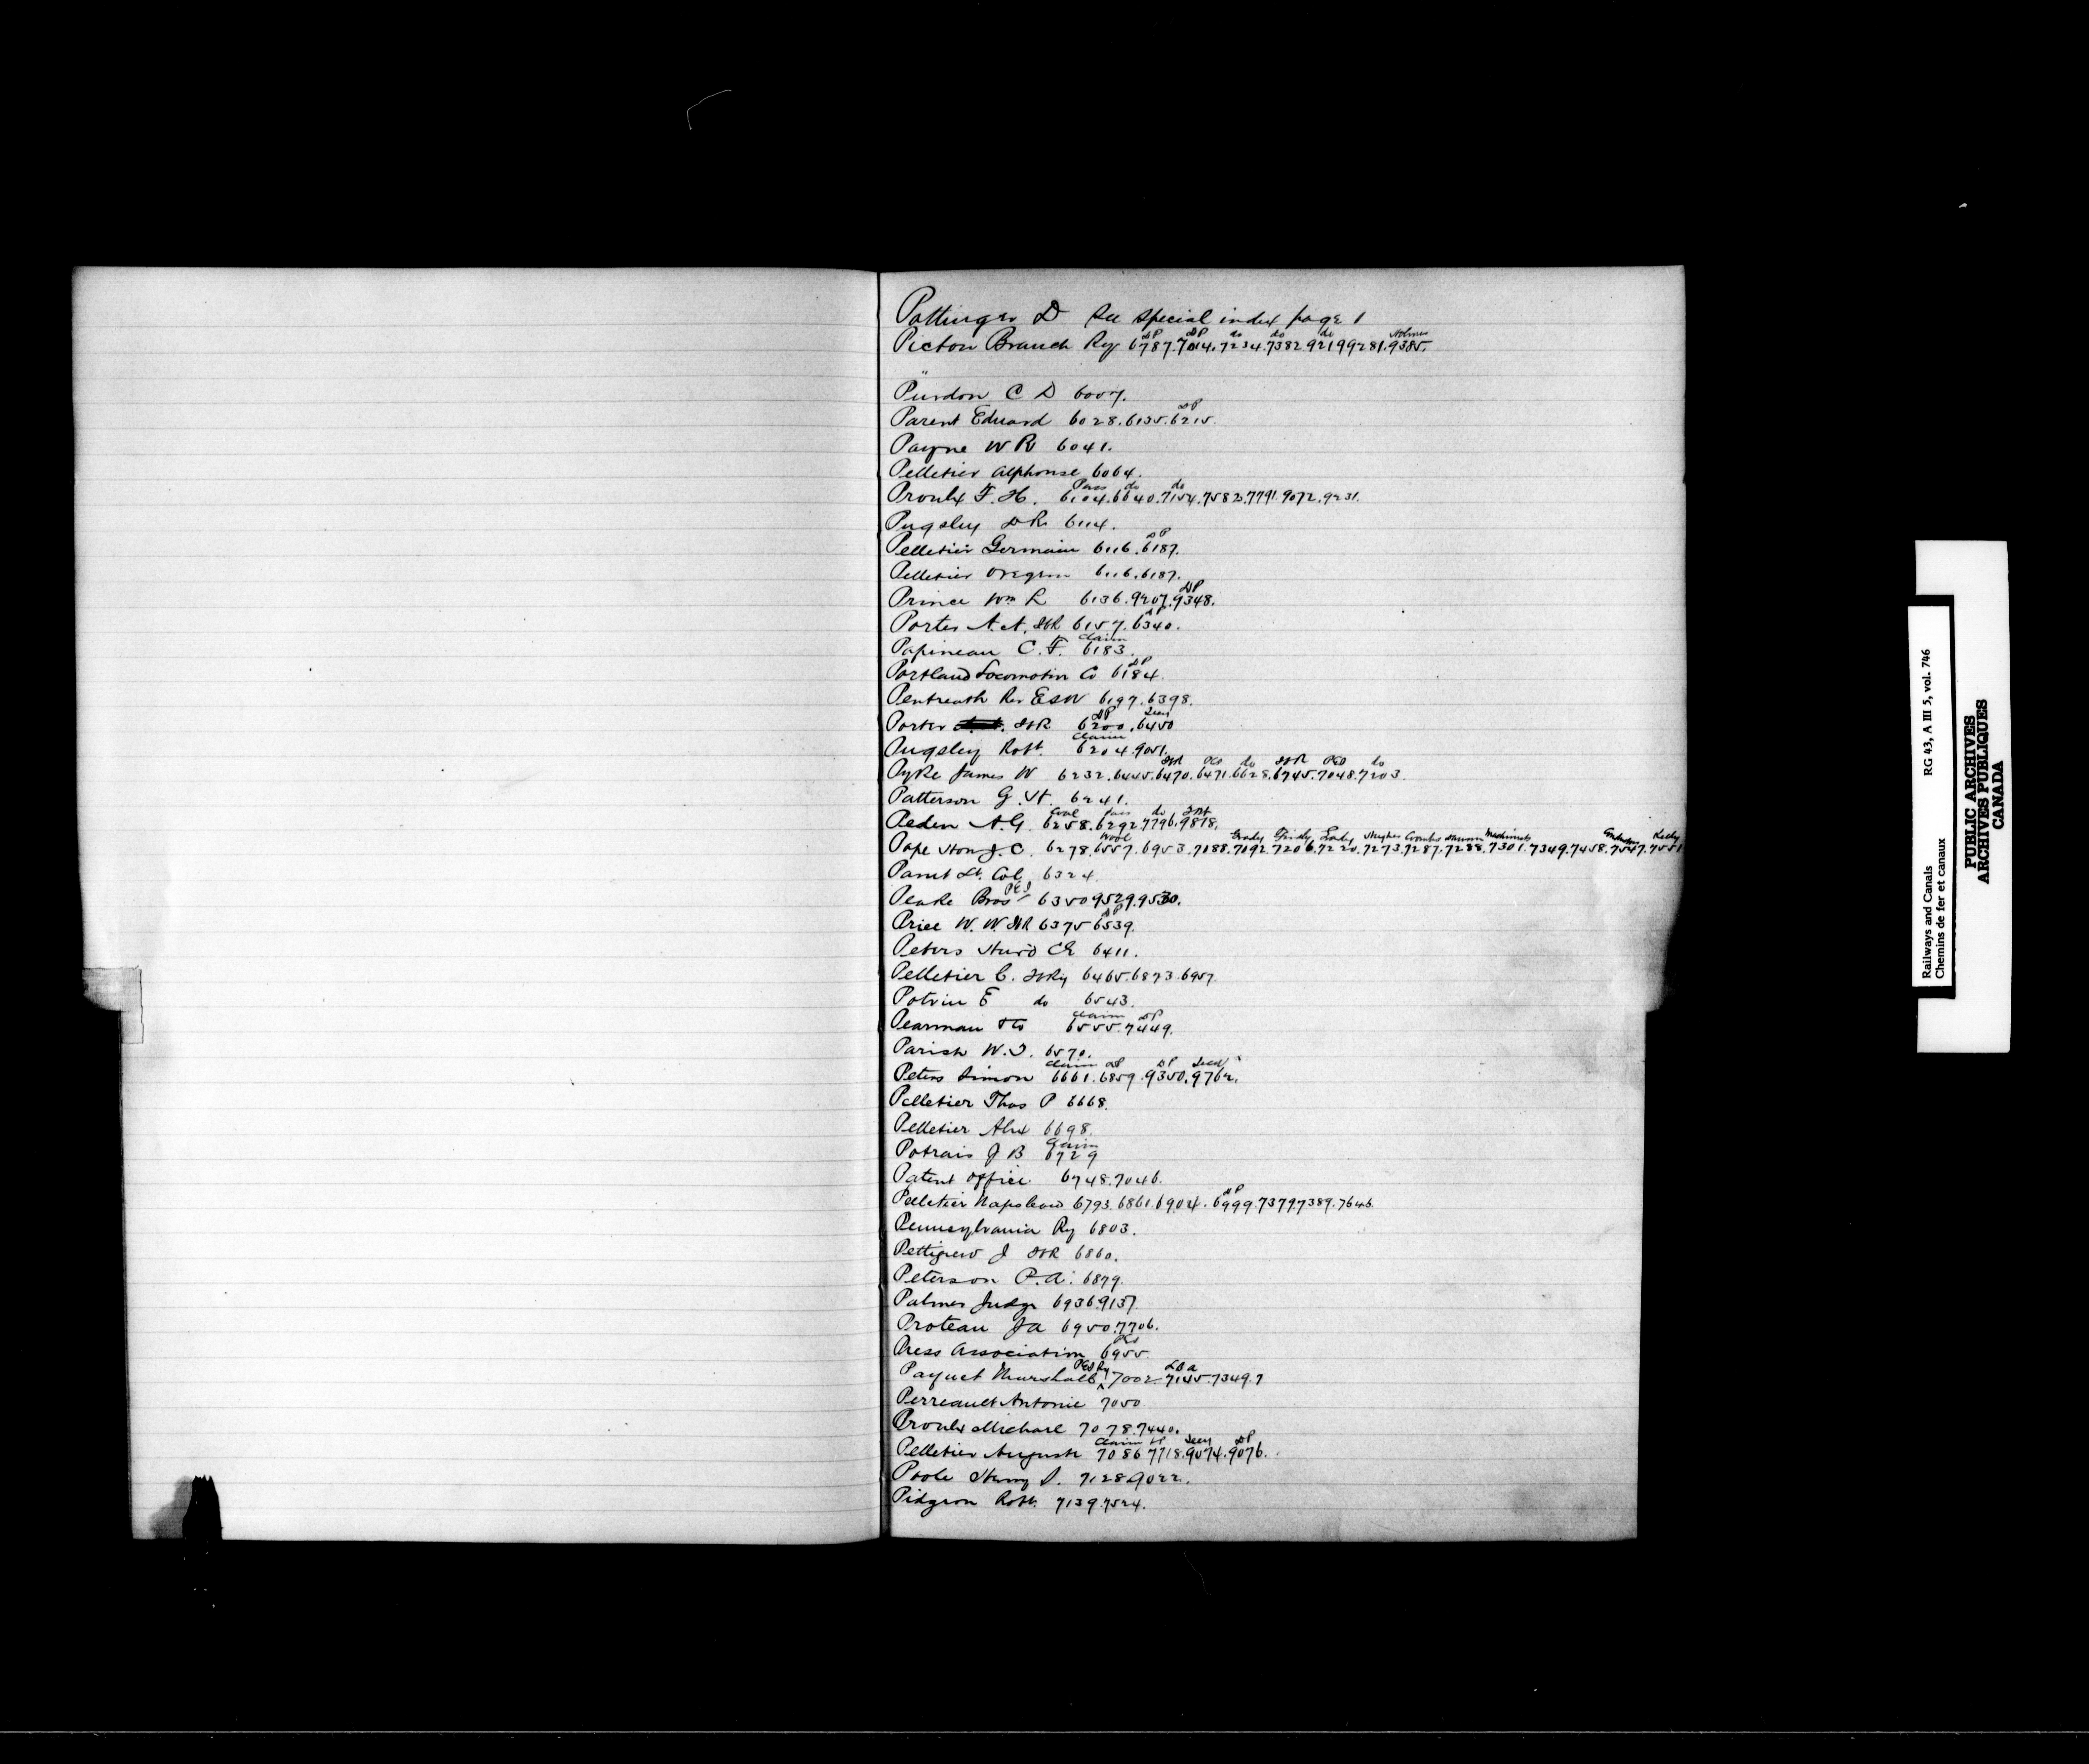 Pottinger D See special index page 1
DP DP do do do Holmes
Pictou Branch Ry 6787.7014.7234.7382.9219 9281.9385.
"
Purdon C D 6007.
DP
Parent Edward 6028.6135.6215.
Payne W R 6041.
Pelletier Alphonse 6064.
Pass do do
Proulx F. H. 6104.6640.7154.7582.7791.9072.9231.
Pugsley D R 6114.
DP
Pelletier Germain 6116.6187.
Pelletier 6116.6187.
DP
Prince Wm R 6136.9207.9348.
DP
Porter A. A. IWR 6157.6340.
Claim
Papineau C. F. 6183.
DP
Portland Locomotive Co 6184.
Pentreath Rev E S W 6197.6398.
DP
Porter IWR 6200.6450
Claim
Pugsley Robt. 6204.9051.
PEI do PEI do
Pyke James W 6232.6445.6470.6471.6628.6745.7048.7203.
Patterson G. W. 6241.
Coal Pass do
Peden A. G. 6258.6292 7796.9878.
Wool Grady Lady Hughes Coombs Machinists Kelly
Pope Hon J. C. 6278.6557.6953.7088.7092.7206.7220.7273.7287.7288.7301.7349.7458.7547.7551
Panet Lt. Col 6324.
PEI
Peake Bros 6350 9529.9530.
DP
Price W. W. IWR 6375 6539.
Peters Hurd CE 6411.
Pelletier C. IWRy 6465.6873.6957.
Potvin E do 6543.
Claim DP
Pearman & Co 6555.7449.
Parish W. I. 6570.
Claim DP DP
Peters Simon 6661.6859.9350.9762.
Pelletier Thos P 6668.
Pelletier Alex 6698.
Claim
Potrais J B 6729
Patent Office 6748.7046.
DP
Pelletier Napoleon 6793.6861.6904.6999.7379 7389.7646.
Pennsylvania Ry 6803.
Pettigrew J IWR 6860.
Peterson P. A. 6879.
Palmer Judge 6936.9137.
Proteau J A 6950.7706.
Press Association 6955
PEI Ry
Paquet Marshall 7002.7145.7349.7
Perreault Antonie 7050
Proulx Michael 7078.7440.
Claim DP
Pelletier August 7086 7718.9074.9076.
Poole Henry S. 7128 9022.
Pidgeon Robt. 7139.7524.
Railways and Canals RG 43, A III 5, vol. 746
Chemins de fer et canaux
PUBLIC ARCHIVES
ARCHIVES PUBLIQUES
CANADA